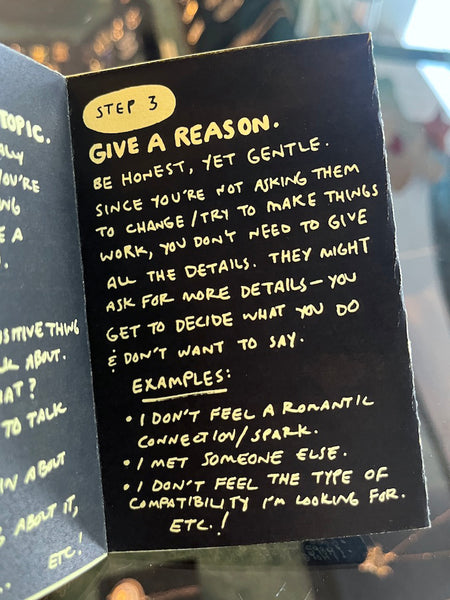 TOPIC.
YOU'RE
A
SITIVE THING
ABOUT.
HAT?
TO TALK
IN ABOUT
ABOUT IT,
ETC!
STEP 3
GIVE A REASON.
BE HONEST, YET GENTLE.
SINCE YOU'RE NOT ASKING THEM
TO CHANGE/TRY TO MAKE THINGS
WORK, YOU DON'T NEED TO GIVE
ALL THE DETAILS. THEY MIGHT
ASK FOR MORE DETAILS—YOU
GET TO DECIDE WHAT YOU DO
& DON'T WANT TO SAY.
EXAMPLES:
• I DON'T FEEL A ROMANTIC
CONNECTION/SPARK.
• I MET SOMEONE ELSE.
• I DON'T FEEL THE TYPE OF
COMPATIBILITY I'M LOOKING FOR.
ETC.!